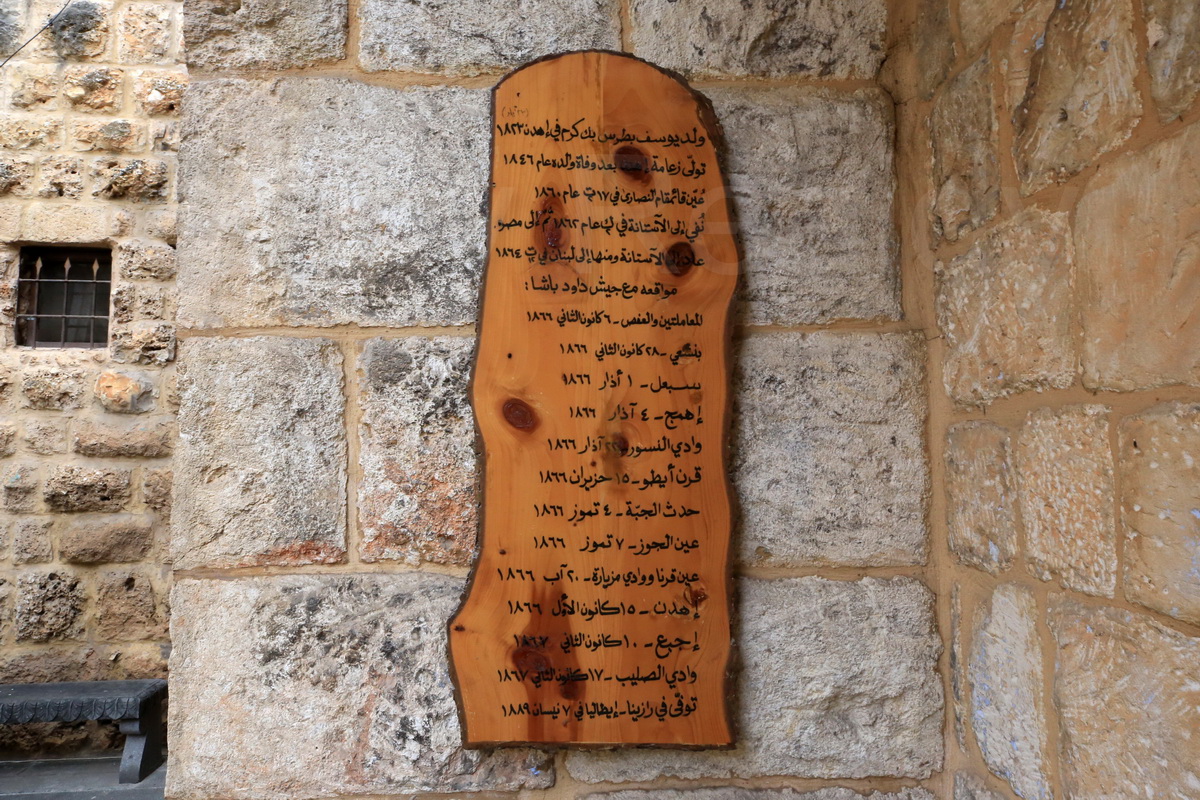 ولد يوسف بطرس بك كرم في إهدن ١٨٢٣
تولّى زعامة إهدن بعد وفاة والده عام ١٨٤٦
عُيّن قائمقام النصارى في ١٧ ت٢ عام ١٨٦٠
نُفي إلى الآستانة في عام ١٨٦٢ ثُمّ إلى مصر.
عاد إلى الآستانة ومنها إلى لبنان في ١٨٦٤
مواقعه مع جيش داود باشا :
المعاملتين والعفص - ٦ كانون الثاني ١٨٦٦
بنشعي - ٢٨ كانون الثاني ١٨٦٦
سبعل - ١ أذار ١٨٦٦
إهمج - ٤ آذار ١٨٦٦
وادي النسور - ٢٢ آذار ١٨٦٦
قرن أيطو - ١٥ حزيران ١٨٦٦
حدث الجبّة - ٤ تموز ١٨٦٦
عين الجوز - ٧ تموز ١٨٦٦
عين قرنا ووادي مزيارة - ٢٠ آب ١٨٦٦
إهدن - ١٥ كانون الأوّل ١٨٦٦
إجبع - ١٠ كانون الثاني ١٨٦٧
وادي الصليب - ١٧ كانون الثاني ١٨٦٧
توفّي في رازينا - إيطاليا في ٧ نيسان ١٨٨٩